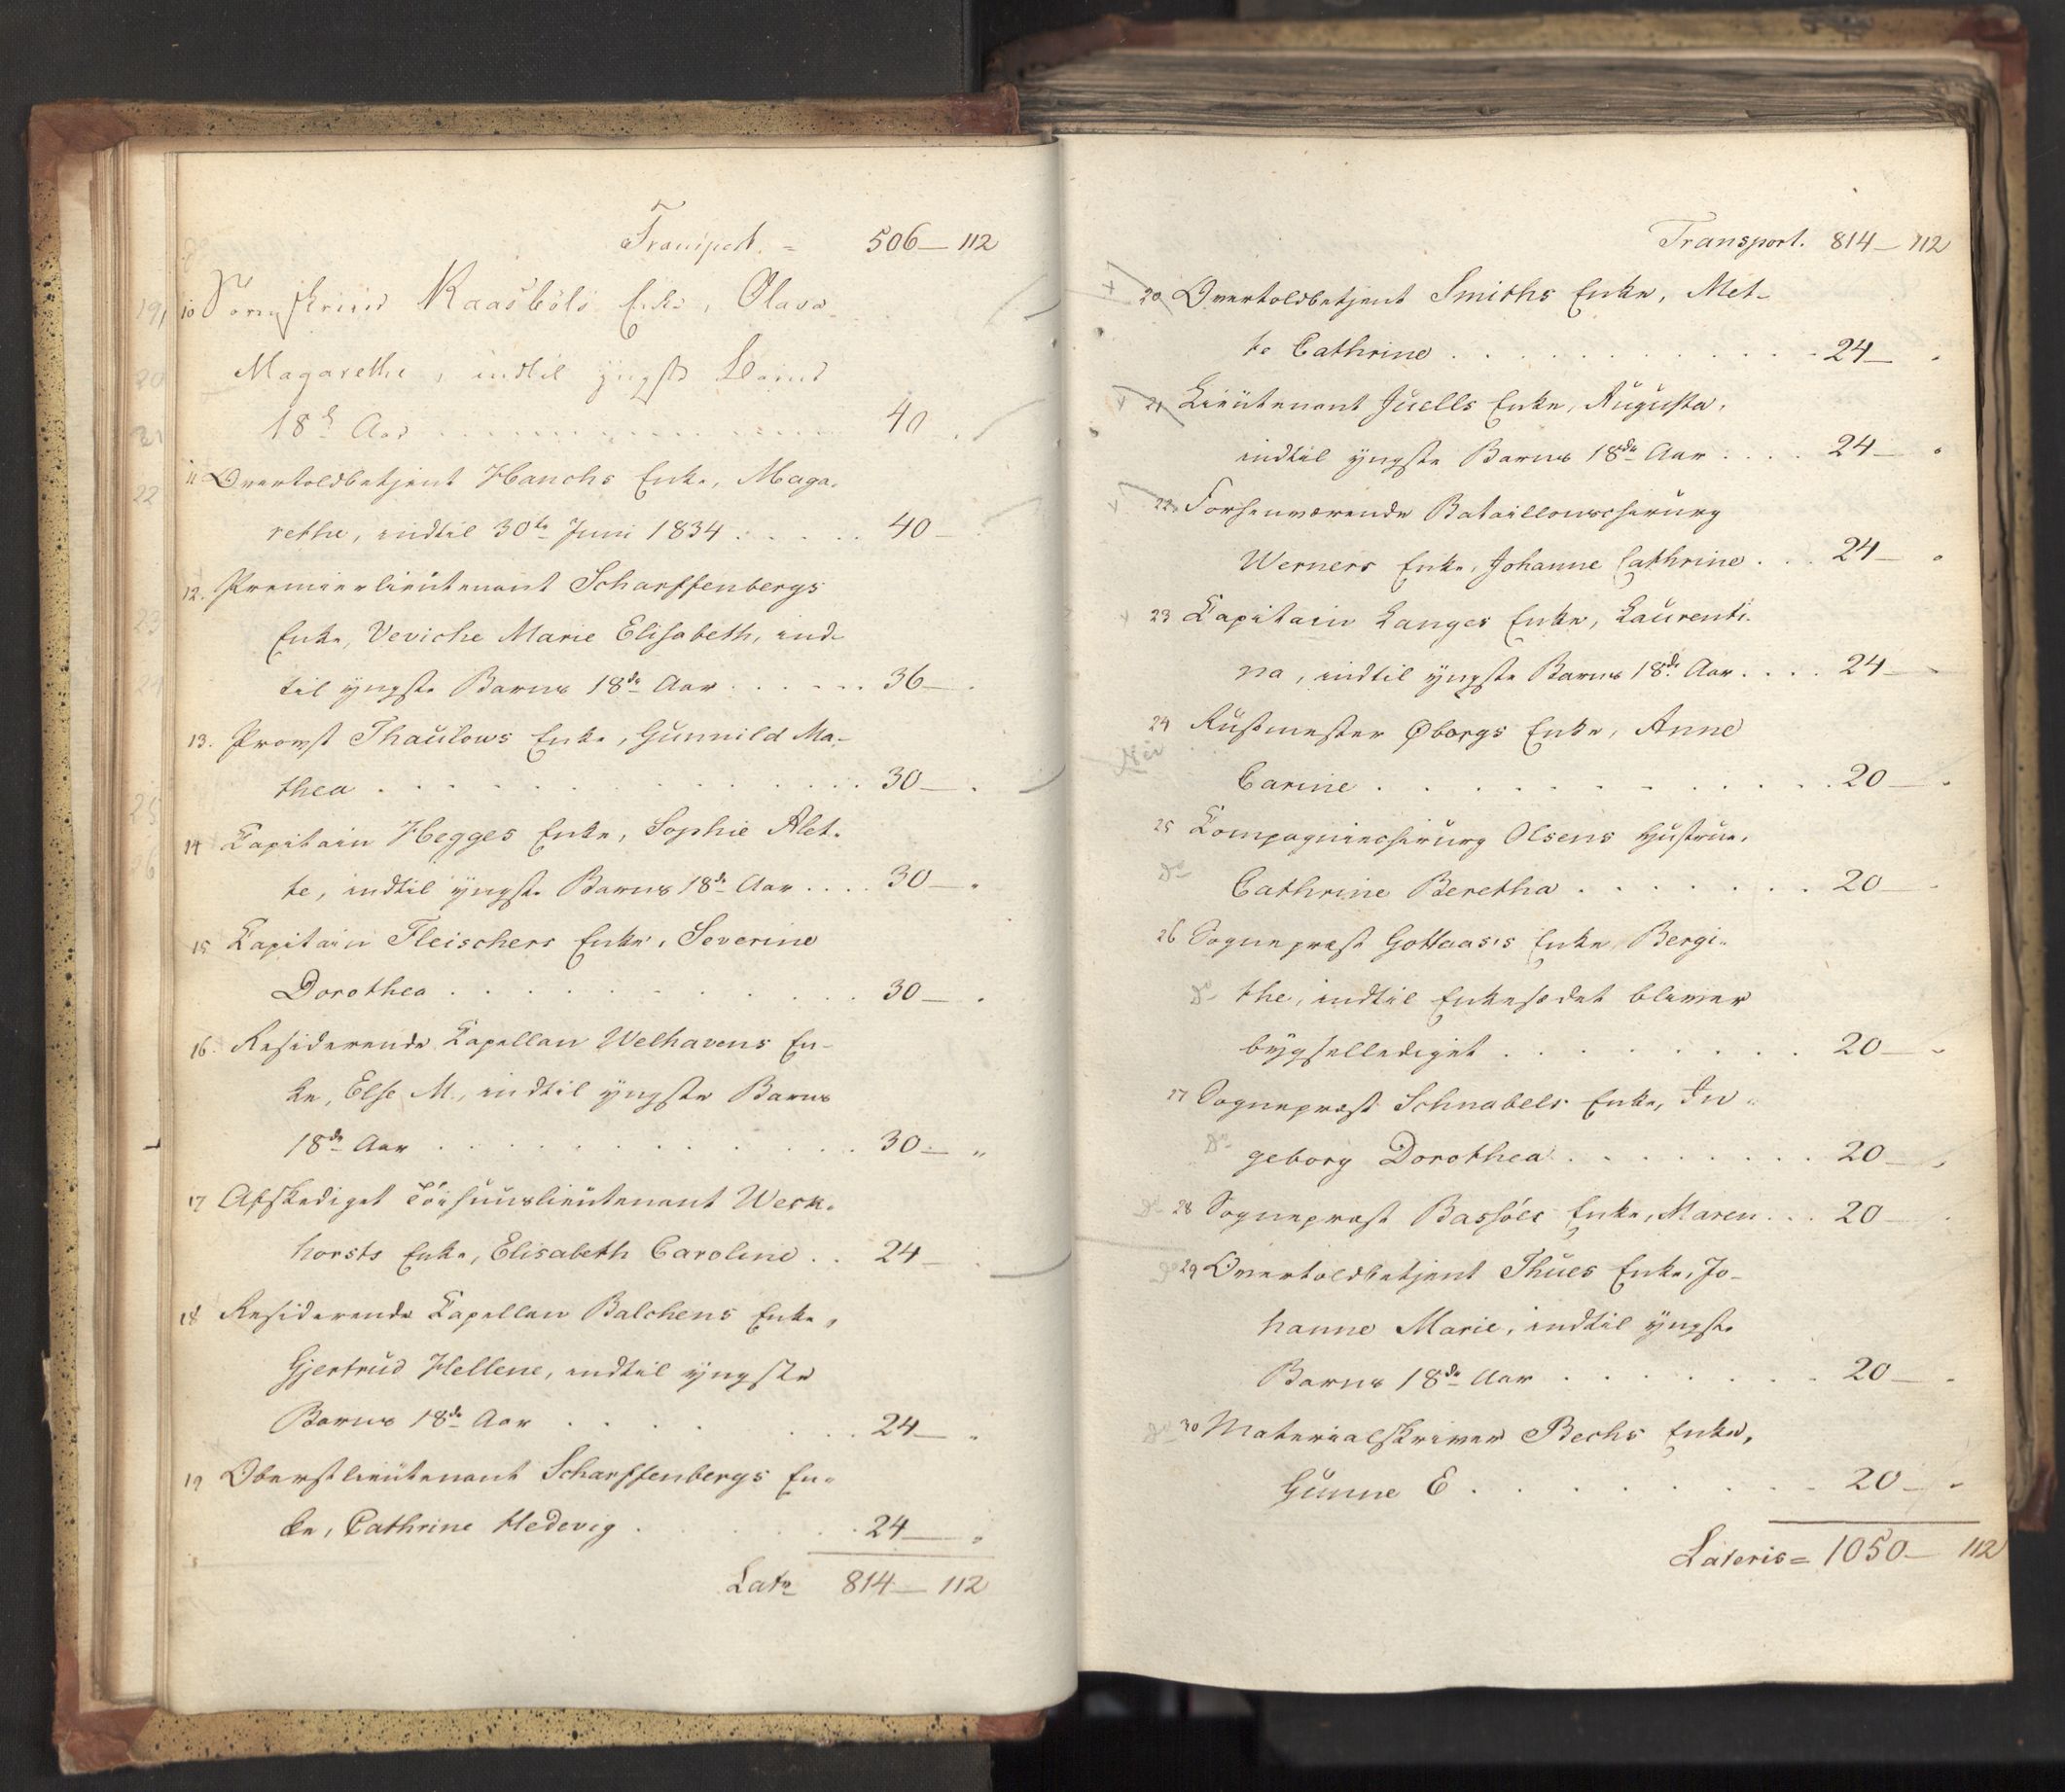 Transport. = 506 — 112
10 Sorenskriver Raasböls Enke, Olava
Magarethe, indtil yngste Barns
18de Aar . . . . 40
11 Overtoldbetjent Hanchs Enke, Maga-
rethe, indtil 30te Juni 1834 . . . . 40 —
12. Premierlieutenant Scharffenbergs
Enke, Veviche Marie Elisabeth, ind-
til yngste Barns 18de Aar . . . . 36 — .
13. Provst Thaulows Enke, Gunnild Ma-
thea . . . . 30 — .
14 Capitain Hegges Enke, Sophie Alet-
te, indtil yngste Barns 18de Aar . . . . 30 — .
15 Capitain Fleischers Enke, Severine
Dorothea . . . . 30 — .
16. Residerende Capellan Welhavens En-
ke, Else M., indtil yngste Barns
18de Aar . . . . 30 — „
17 Afskediget Töihuuslieutenant Werk-
horsts Enke, Elisabeth Caroline . . 24 — .
18 Residerende Capellan Balchens Enke,
Gjertrud Hellene, indtil yngste
Barns 18de Aar . . . . 24 — .
19 Oberstlieutenant Scharffenbergs En-
ke, Cathrine Hedevig . . . . 24 — „
Latr 814 — 112
19,
20
21
22
23
24
25
26
Transport. 814 — 112
20 Overtoldbetjent Smiths Enke, Met-
te Cathrine . . . . 24 — .
21 Lieutenant Juells Enke, Augusta,
indtil yngste Barns 18de Aar . . . . 24 — .
22. Forhenværende Bataillonschirurg
Werners Enke, Johanne Cathrine . . . 24 — .
23 Capitain Langes Enke, Laurenti-
na, indtil yngste Barns 18de Aar . . . . 24 —
24 Rustmester Øborgs Enke, Anne
Carine . . . . 20 — .
25 Compagniechirurg Olsens Hustrue,
Do Cathrine Beretha . . . . 20 — .
26 Sognepræst Gottaas's Enke, Bergi-
Do the, indtil Enkesædet bliver
bygselledigt . . . . 20 — .
27 Sognepræst Schnabels Enke, In-
Do geborg Dorothea . . . . 20 — .
Do 28 Sognepræst Bassöes Enke, Maren . . . 20 — .
Do 29 Overtoldbetjent Thues Enke, Jo-
hanne Marie, indtil yngste
Barns 18de Aar . . . . 20 — .
Do 30 Materialskriver Bechs Enke,
Gunne E . . . . 20 — .
Lateris = 1050 — 112